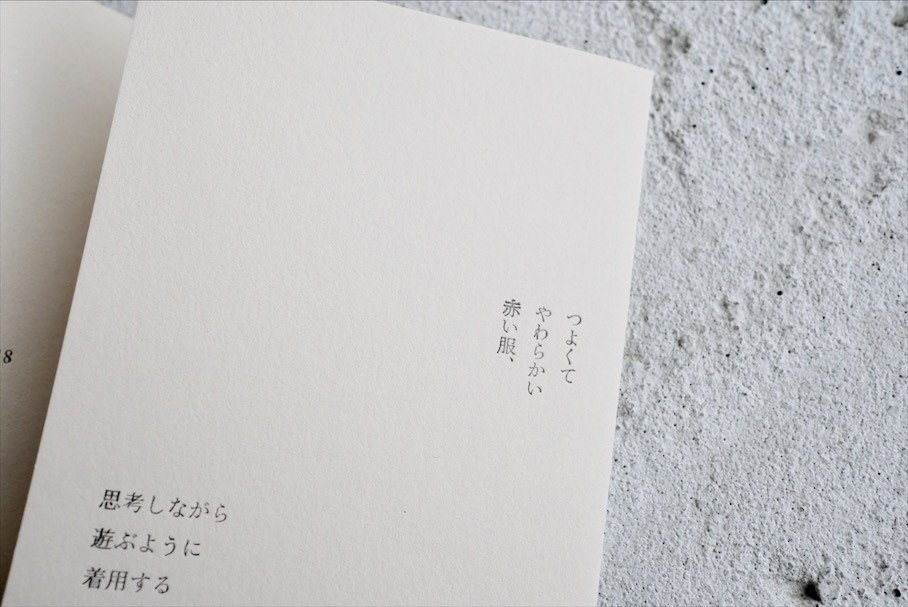 つよくて
やわらかい
赤い服、
思考しながら
遊ぶように
着用する
8